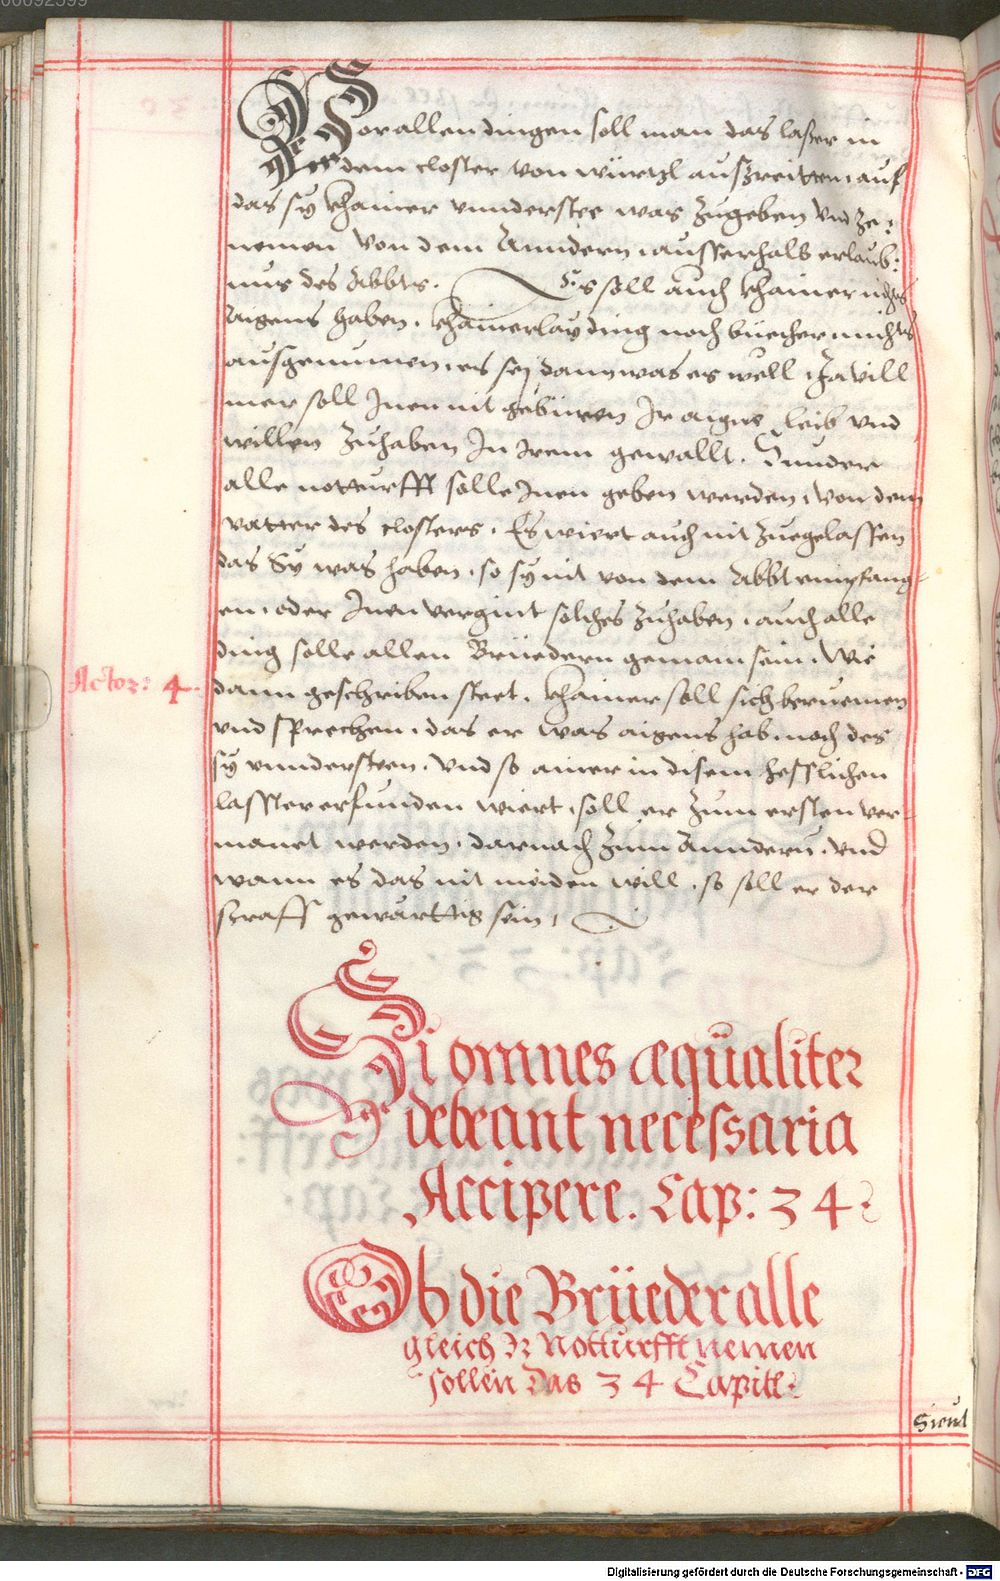 00092599
Vor allen dingen soll man das lasster in
dem closter von würtzl außreitten, auf
das sy khainer vnnderstee was zugeben vnd ze:
nemen von dem Anndern, ausserhalb erlaub:
nus des Abbts. Es soll auch khainer nichts
Aigens haben, khainerlay ding noch büecher nichts
ausgenumen, es sej dann was es well, Ja vill
mer soll Inen nit gebüren Ir aigne leib vnd
willen zuhaben In Irem gewallt. Sunder
alle notturfft solle Inen geben werden, von dem
vatter des closters. Es wiert auch nit zuegelassen
das Sy was haben, so sy nit von dem Abbt empfang-
en, oder Inen vergint solches zuhaben, auch alle
ding solle allen Brüedern gemain sein. Wie
Actor: 4.
dann geschriben steet. khainer soll sich beruemen
vnd sprechen, das er was aigens hab, noch des
sy vnndersteen. Vnd so ainer in disem hesslichen
lasster erfunden wiert, soll er zum ersten ver-
manet werden, darnach zum Anndern. Vnd
wann es das nit meiden will, so soll er der
straff gewärttig sein,
Si omnes æqualiter
debeant necessaria
Accipere. Cap: 34.
Ob die Brüeder alle
gleich Ir Notturfft nemen
sollen Das 34 Capitl.
Sicut
Digitalisierung gefördert durch die Deutsche Forschungsgemeinschaft - DFG